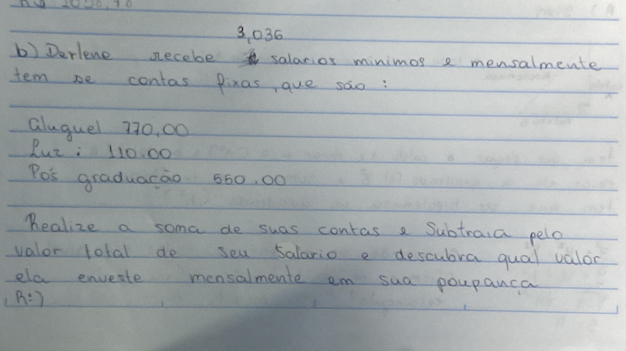 3,036
b) Derlene recebe salarios minimos e mensalmente
tem se contas fixas, que são :
Aluguel 770,00
Luz : 110.00
Pós graduação 550.00
Realize a soma de suas contas e Subtraia pelo
valor total de seu Salario e descubra qual valor
ela enveste mensalmente em sua poupança
R:)